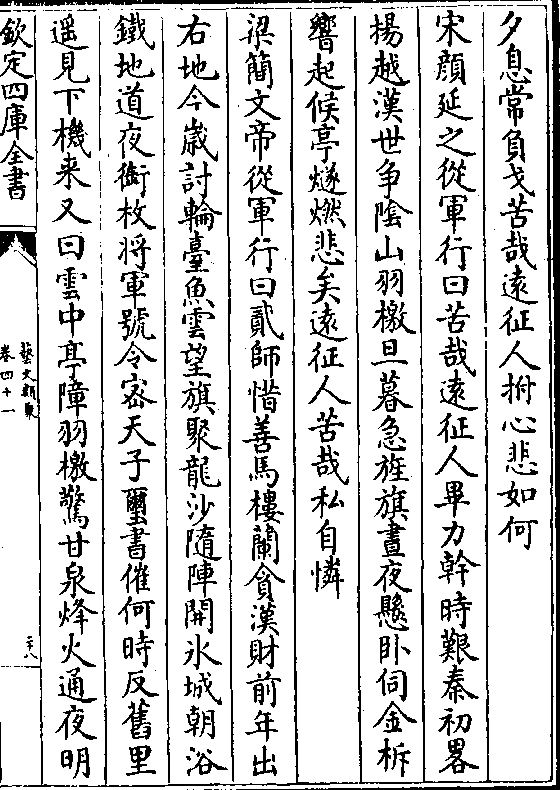 夕息常負戈苦哉遠征人拊心悲如何
宋顔延之從軍行曰苦哉遠征人畢力幹時艱秦初畧
揚越漢世争陰山羽檄旦暮急旌旗晝夜懸卧伺金柝
響起候亭燧燃悲矣遠征人苦哉私自憐
梁簡文帝從軍行曰貳師惜善馬樓蘭貪漢財前年出
右地今歲討輪臺魚雲望旗聚龍沙隨陣開氷城朝浴
鐵地道夜銜枚將軍號令密天子璽書催何時反舊里
遥見下機来又曰雲中亭障羽檄驚甘泉烽火通夜明
欽定四庫全書
藝文類聚
卷四十一
二十八